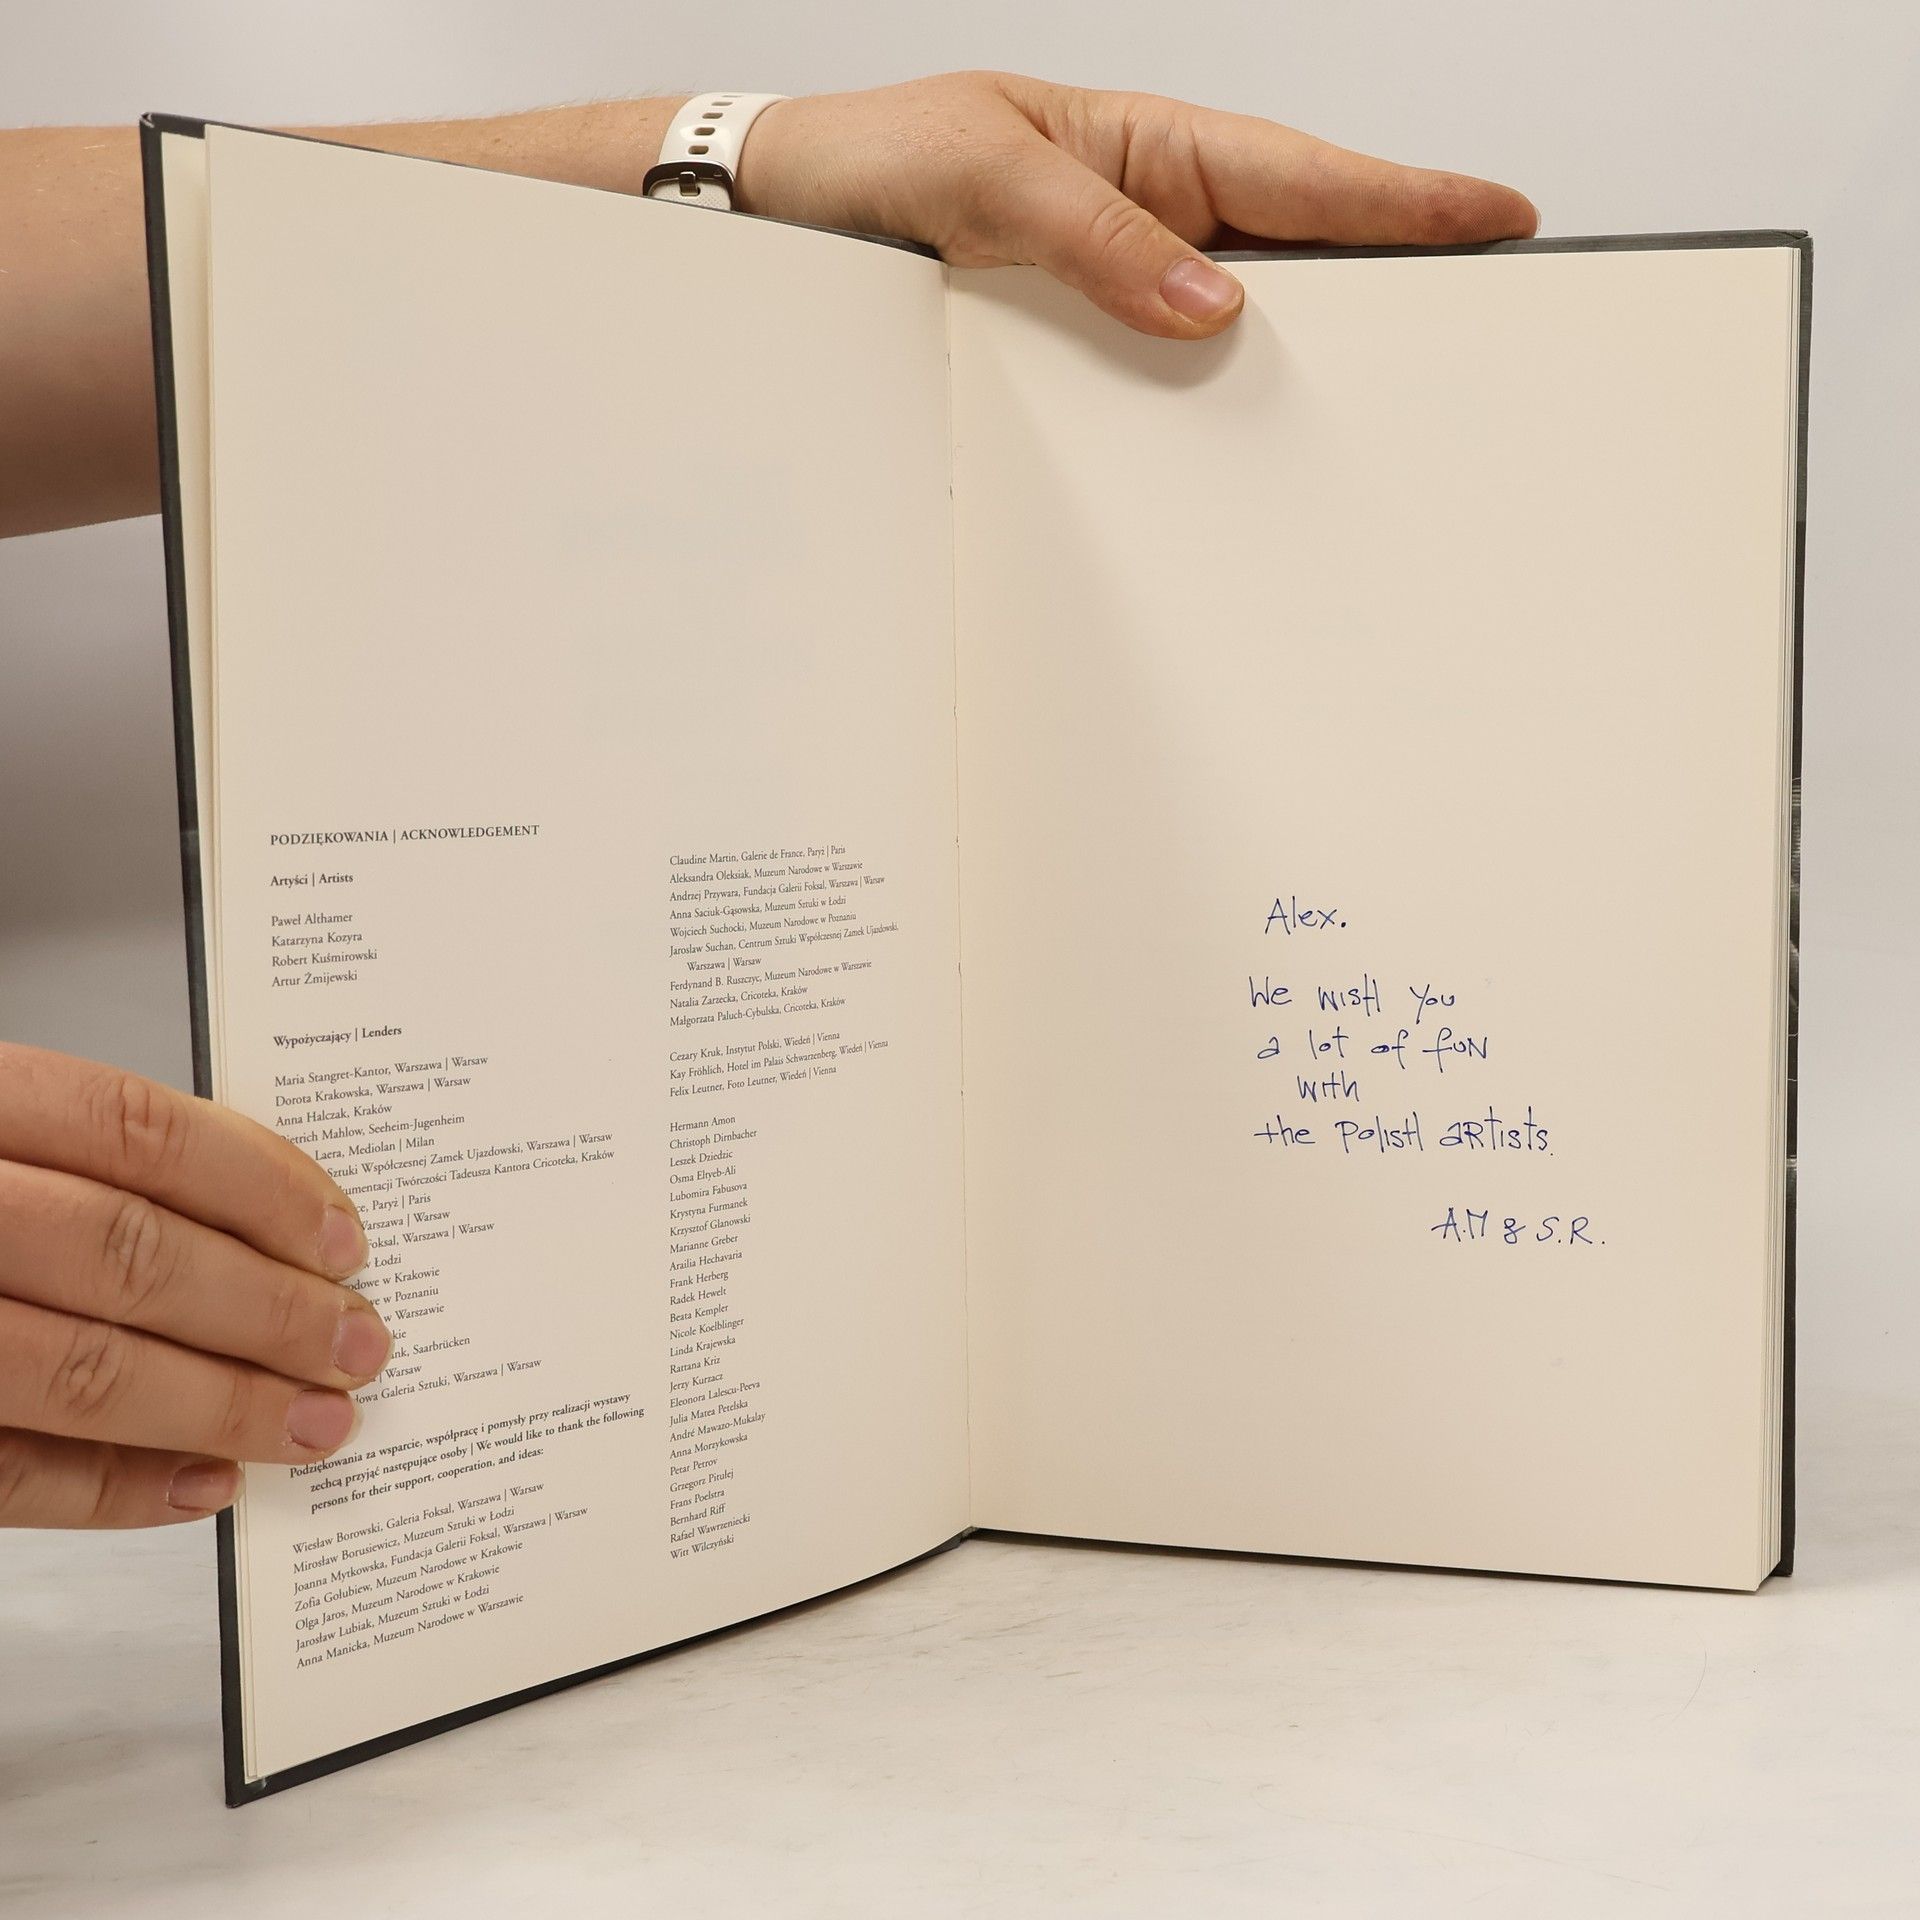 PODZIĘKOWANIA | ACKNOWLEDGEMENT
Artyści | Artists
Paweł Althamer
Katarzyna Kozyra
Robert Kuśmirowski
Artur Żmijewski
Wypożyczający | Lenders
Maria Stangret-Kantor, Warszawa | Warsaw
Dorota Krakowska, Warszawa | Warsaw
Anna Halczak, Kraków
Dietrich Mahlow, Seeheim-Jugenheim
Laera, Mediolan | Milan
Sztuki Współczesnej Zamek Ujazdowski, Warszawa | Warsaw
kumentacji Twórczości Tadeusza Kantora Cricoteka, Kraków
ce, Paryż | Paris
Warszawa | Warsaw
Foksal, Warszawa | Warsaw
w Łodzi
odowe w Krakowie
we w Poznaniu
w Warszawie
kie
ank, Saarbrücken
| Warsaw
dowa Galeria Sztuki, Warszawa | Warsaw
Podziękowania za wsparcie, współpracę i pomysły przy realizacji wystawy
zechcą przyjąć następujące osoby | We would like to thank the following
persons for their support, cooperation, and ideas:
Wiesław Borowski, Galeria Foksal, Warszawa | Warsaw
Mirosław Borusiewicz, Muzeum Sztuki w Łodzi
Joanna Mytkowska, Fundacja Galerii Foksal, Warszawa | Warsaw
Zofia Gołubiew, Muzeum Narodowe w Krakowie
Olga Jaros, Muzeum Narodowe w Krakowie
Jarosław Lubiak, Muzeum Sztuki w Łodzi
Anna Manicka, Muzeum Narodowe w Warszawie
Claudine Martin, Galerie de France, Paryż | Paris
Aleksandra Oleksiak, Muzeum Narodowe w Warszawie
Andrzej Przywara, Fundacja Galerii Foksal, Warszawa | Warsaw
Anna Saciuk-Gąsowska, Muzeum Sztuki w Łodzi
Wojciech Suchocki, Muzeum Narodowe w Poznaniu
Jarosław Suchan, Centrum Sztuki Współczesnej Zamek Ujazdowski,
Warszawa | Warsaw
Ferdynand B. Ruszczyc, Muzeum Narodowe w Warszawie
Natalia Zarzecka, Cricoteka, Kraków
Małgorzata Paluch-Cybulska, Cricoteka, Kraków
Cezary Kruk, Instytut Polski, Wiedeń | Vienna
Kay Fröhlich, Hotel im Palais Schwarzenberg, Wiedeń | Vienna
Felix Leutner, Foto Leutner, Wiedeń | Vienna
Hermann Amon
Christoph Dirnbacher
Leszek Dziedzic
Osma Eltyeb-Ali
Lubomira Fabusova
Krystyna Furmanek
Krzysztof Glanowski
Marianne Greber
Arailia Hechavaria
Frank Herberg
Radek Hewelt
Beata Kempler
Nicole Koelblinger
Linda Krajewska
Rattana Kriz
Jerzy Kurzacz
Eleonora Lalescu-Peeva
Julia Matea Petelska
André Mawazo-Mukalay
Anna Morzykowska
Petar Petrov
Grzegorz Pitulej
Frans Poelstra
Bernhard Riff
Rafael Wawrzeniecki
Witt Wilczyński
Alex.
We wish you
a lot of fun
with
the Polish artists.
A.M & S.R.